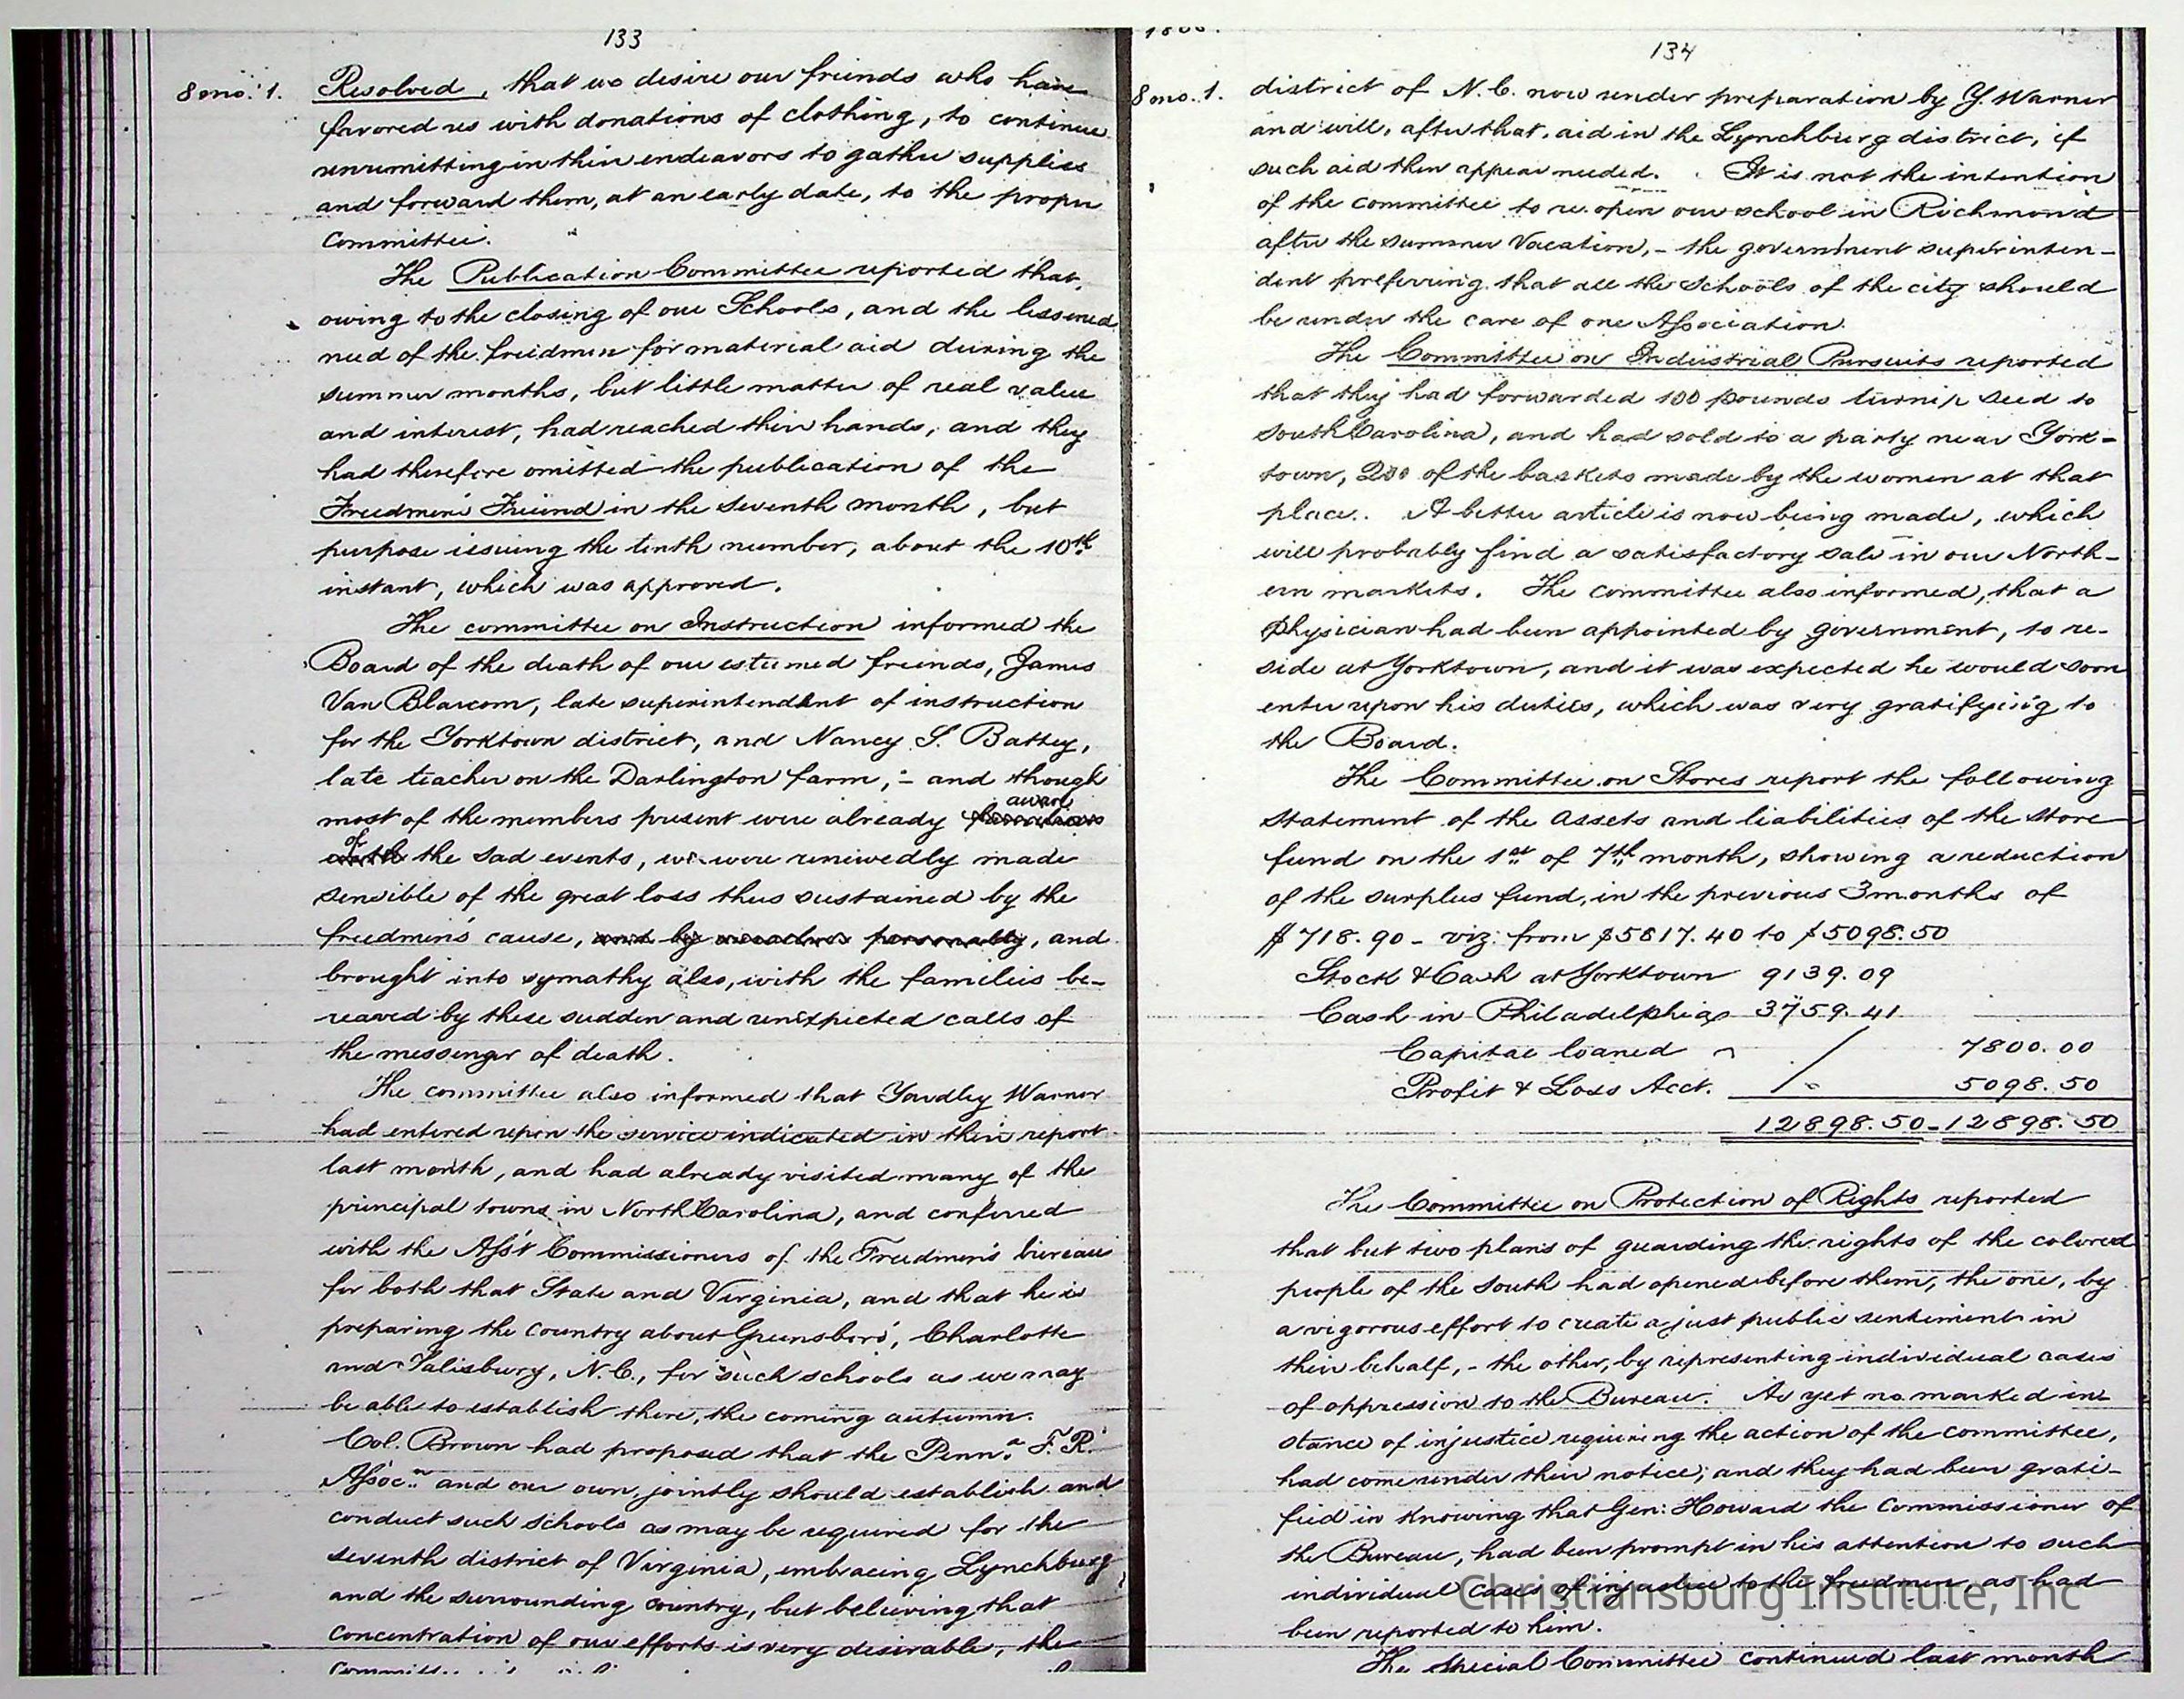 133
8 mo. 1.
Resolved, that we desire our friends who have
favored us with donations of clothing, to continue
unremitting in their endeavors to gather supplies
and forward them, at an early date, to the proper
Committee.
The Publication Committee reported that,
owing to the closing of our Schools, and the lessened
need of the freedmen for material aid during the
summer months, but little matter of real value
and interest, had reached their hands, and they
had therefore omitted the publication of the
Freedmen's Friend in the seventh month, but
purpose issuing the tenth number, about the 10th
instant, which was approved.
The committee on Instruction informed the
Board of the death of our esteemed friends, James
Van Blarcom, late superintendent of instruction
for the Yorktown district, and Nancy S. Battey,
late teacher on the Darlington farm, - and though
most of the members present were already familiar aware
with of the sad events, we were renewedly made
sensible of the great loss thus sustained by the
freedmen's cause, and by ourselves personally, and
brought into symathy also, with the families be-
reaved by these sudden and unexpected calls of
the messenger of death.
The committee also informed that Yardley Warner
had entered upon the service indicated in their report
last month, and had already visited many of the
principal towns in North Carolina, and conferred
with the Ass't Commissioners of the Freedmen's bureau
for both that State and Virginia, and that he is
preparing the country about Greensboro', Charlotte
and Salisbury, N.C., for such schools as we may
be able to establish there, the coming autumn.
Col. Brown had proposed that the Penn.a F. R.
Assoc.n and our own, jointly should establish and
conduct such schools as may be required for the
seventh district of Virginia, embracing Lynchburg
and the surrounding country, but believing that
concentration of our efforts is very desirable, the
134
8 mo. 1.
district of N.C. now under preparation by Y. Warner
and will, after that, aid in the Lynchburg district, if
such aid then appear needed. It is not the intention
of the committee to re-open our school in Richmond
after the summer vacation, - the government superinten-
dent preferring that all the schools of the city should
be under the care of one Association.
The Committee on Industrial Pursuits reported
that they had forwarded 100 pounds turnip seed to
South Carolina, and had sold to a party near York-
town, 200 of the baskets made by the women at that
place. A better article is now being made, which
will probably find a satisfactory sale in our North-
ern markets. The committee also informed, that a
Physician had been appointed by government, to re-
side at Yorktown, and it was expected he would soon
enter upon his duties, which was very gratifying to
the Board.
The Committee on Stores report the following
statement of the assets and liabilities of the store
fund on the 1st of 7th month, showing a reduction
of the surplus fund, in the previous 3 months of
$718.90 - viz: from $5817.40 to $5098.50
Stock & Cash at Yorktown 9139.09
Cash in Philadelphia 3759.41
Capital loaned 7800.00
Profit & Loss Acct. 5098.50
12898.50 - 12898.50
The Committee on Protection of Rights reported
that but two plans of guarding the rights of the colored
people of the South had opened before them, the one, by
a vigorous effort to create a just public sentiment in
their behalf, - the other, by representing individual cases
of oppression to the Bureau. As yet no marked in-
stance of injustice requiring the action of the committee,
had come under their notice; and they had been grati-
fied in knowing that Gen: Howard the Commissioner of
the Bureau, had been prompt in his attention to such
individual cases of injustice to the freedmen, as had
been reported to him.
The Special Committee continued last month
Christiansburg Institute, Inc